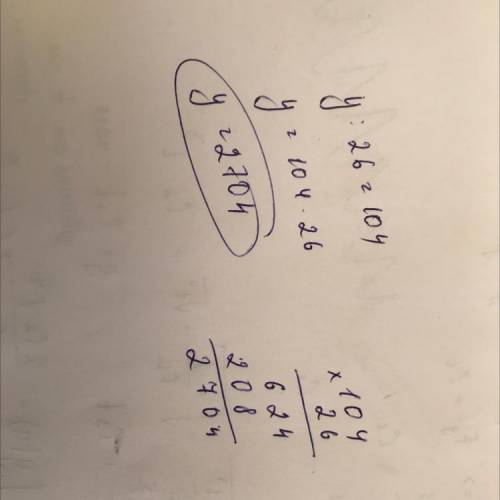 y : 26 = 104
y = 104 · 26
y = 2704
× 104
26
624
208
2704